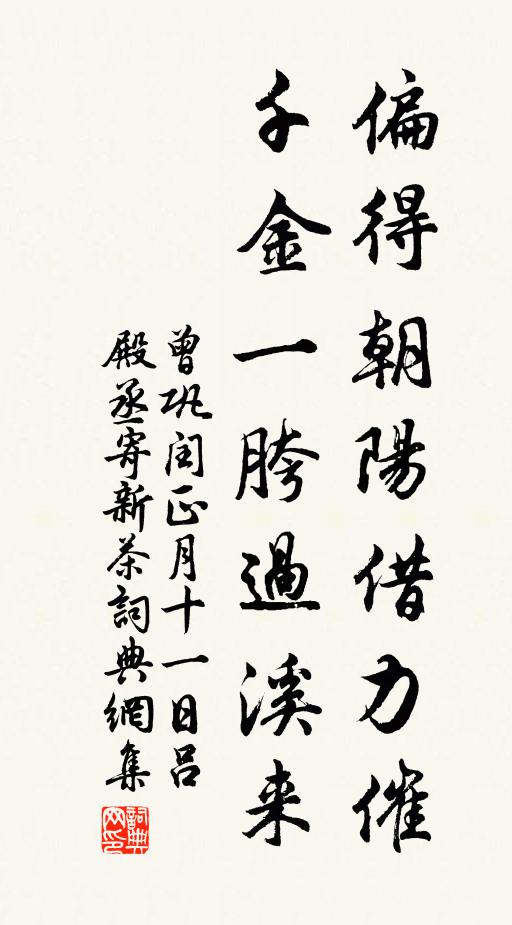 偏得朝陽借力催
千金一胯過溪来
曾巩闰正月十一日吕
殿丞寄新茶詞典網集
詞典网印